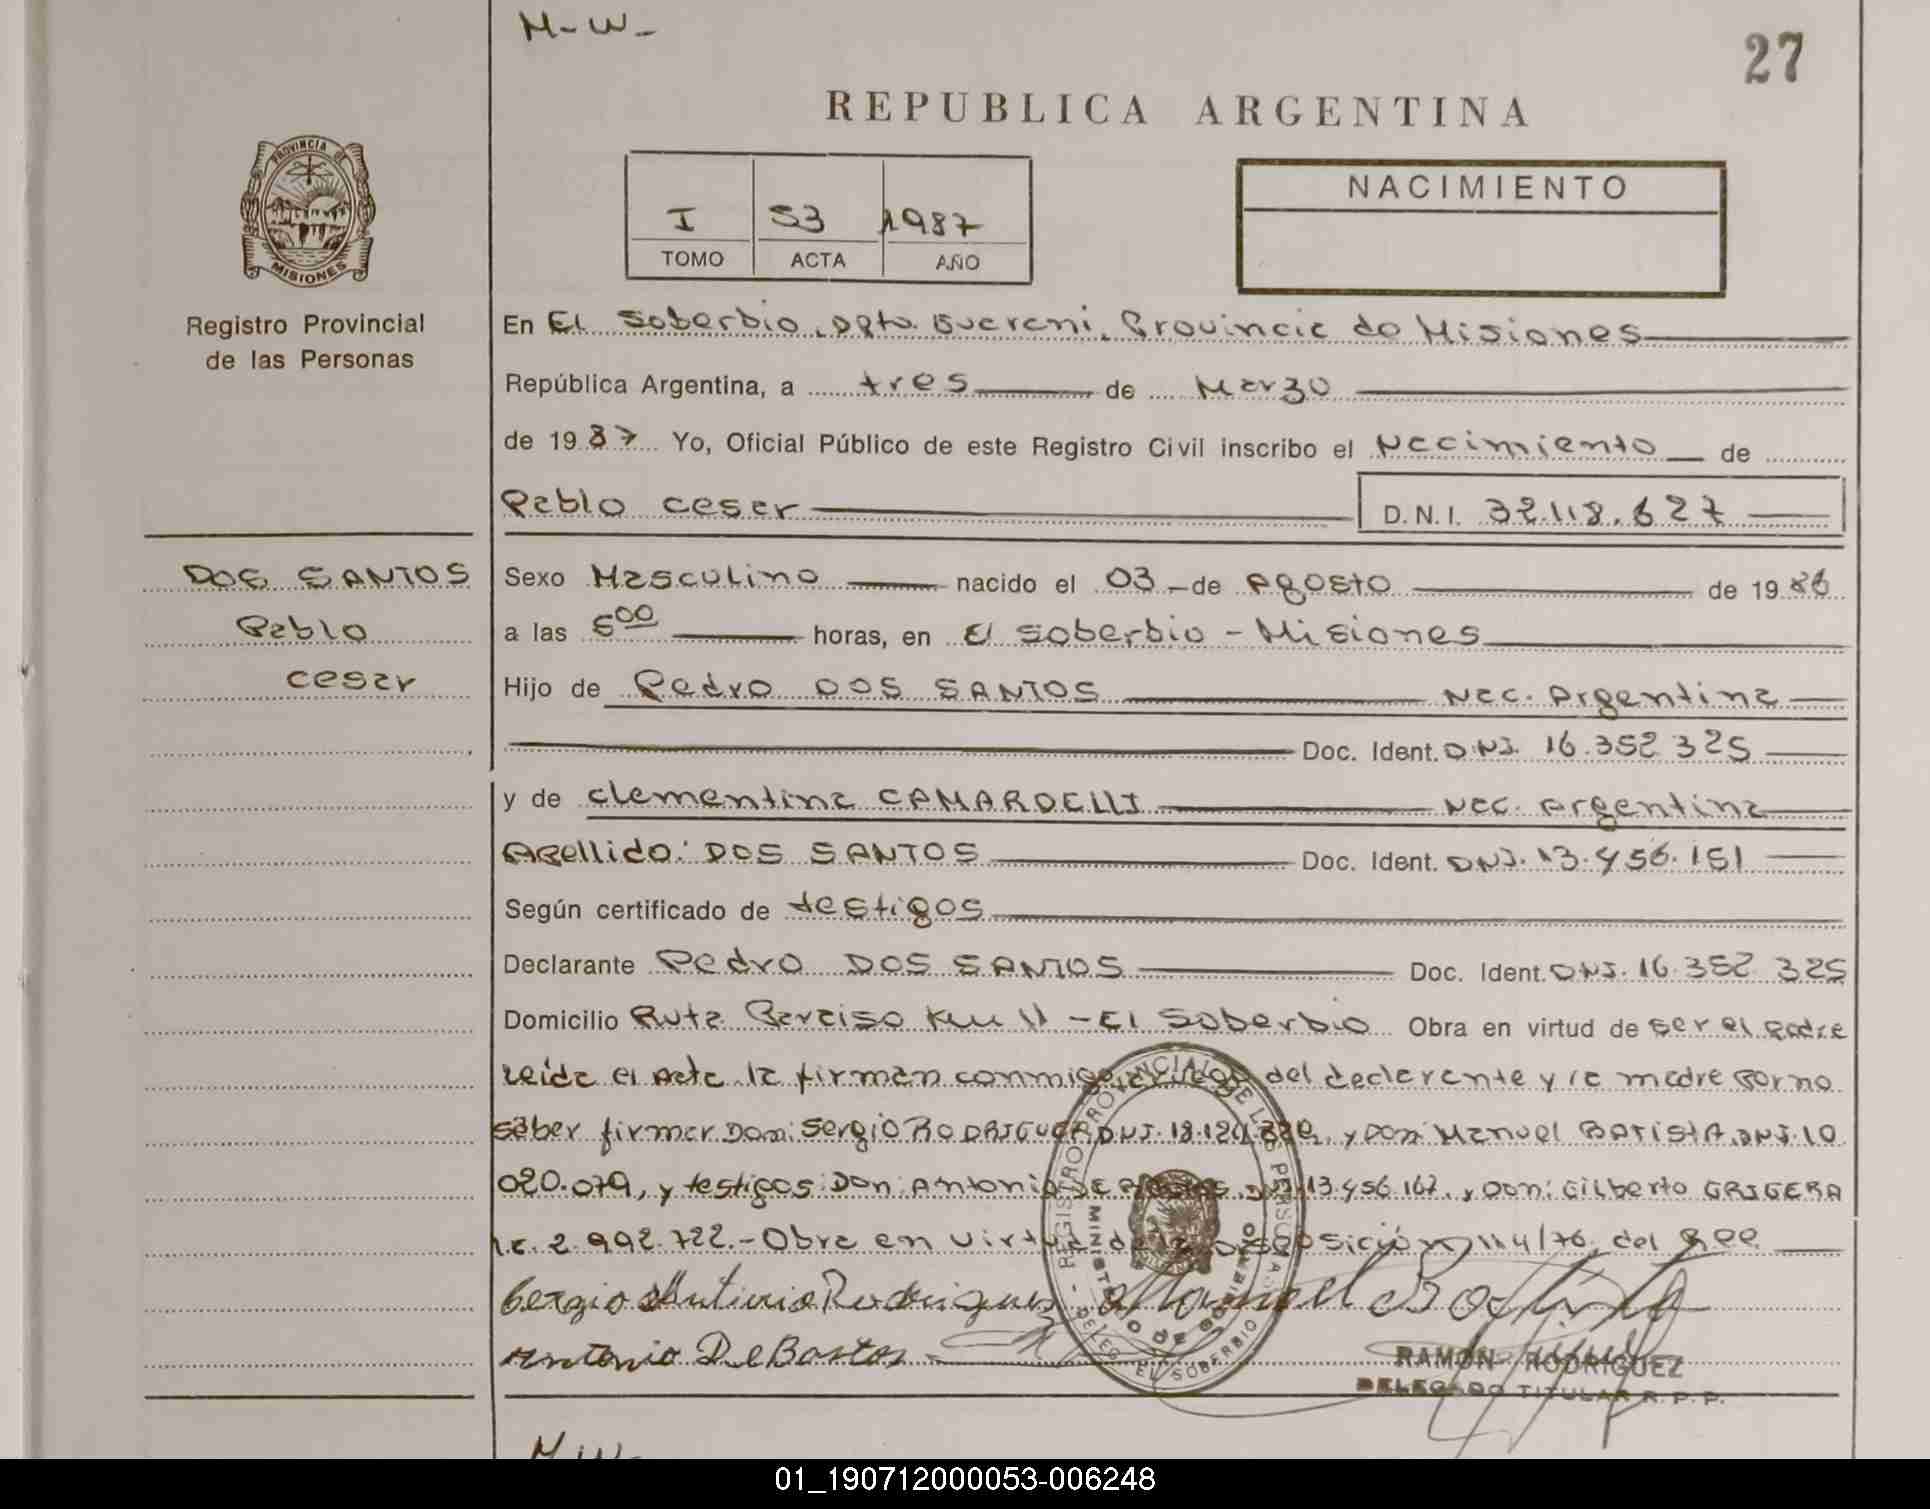 M-W-
27
REPUBLICA ARGENTINA
PROVINCIA DE
MISIONES
Registro Provincial
de las Personas
I 53 1987
TOMO ACTA AÑO
NACIMIENTO
En El Soberbio, Dpto. Guarani, Provincia de Misiones
República Argentina, a tres de Marzo
de 1987 Yo, Oficial Público de este Registro Civil inscribo el Nacimiento de
Pablo Cesar D.N.I. 32.118.627
DOS SANTOS
Pablo
Cesar
Sexo Masculino nacido el 03 de Agosto de 1986
a las 5 00 horas, en El Soberbio - Misiones
Hijo de Pedro DOS SANTOS Nac. Argentina
Doc. Ident. D.N.I. 16.352 325
y de Clementina CAMARDELLI Nac. Argentina
Apellido: DOS SANTOS Doc. Ident. DNI. 13.456.151
Según certificado de testigos
Declarante Pedro DOS SANTOS Doc. Ident. DNI. 16.352 325
Domicilio Ruta Paraiso Km 11 - El Soberbio Obra en virtud de ser el padre
Leida el Acta la firman conmigo a ruego del declarante y la madre por no
saber firmar Don: Sergio RODRIGUEZ DNI. 18.120. y Don: Manuel BATISTA, DNI. 10
020.079, y testigos: Don: Antonio DE DNI 13.456.167, y Don: Gilberto GRIGERA
2.992.722.- Obra en virtud de la Disposición 114/76, del
Sergio Antonio Rodriguez Manuel Batista
Antonio De Bastos
REGISTRO PROVINCIAL DE LAS PERSONAS
MINISTERIO DE GOBIERNO
DELEG. EL SOBERBIO
RAMON RODRIGUEZ
DELEGADO TITULAR R.P.P.
M-W-
01_190712000053-006248